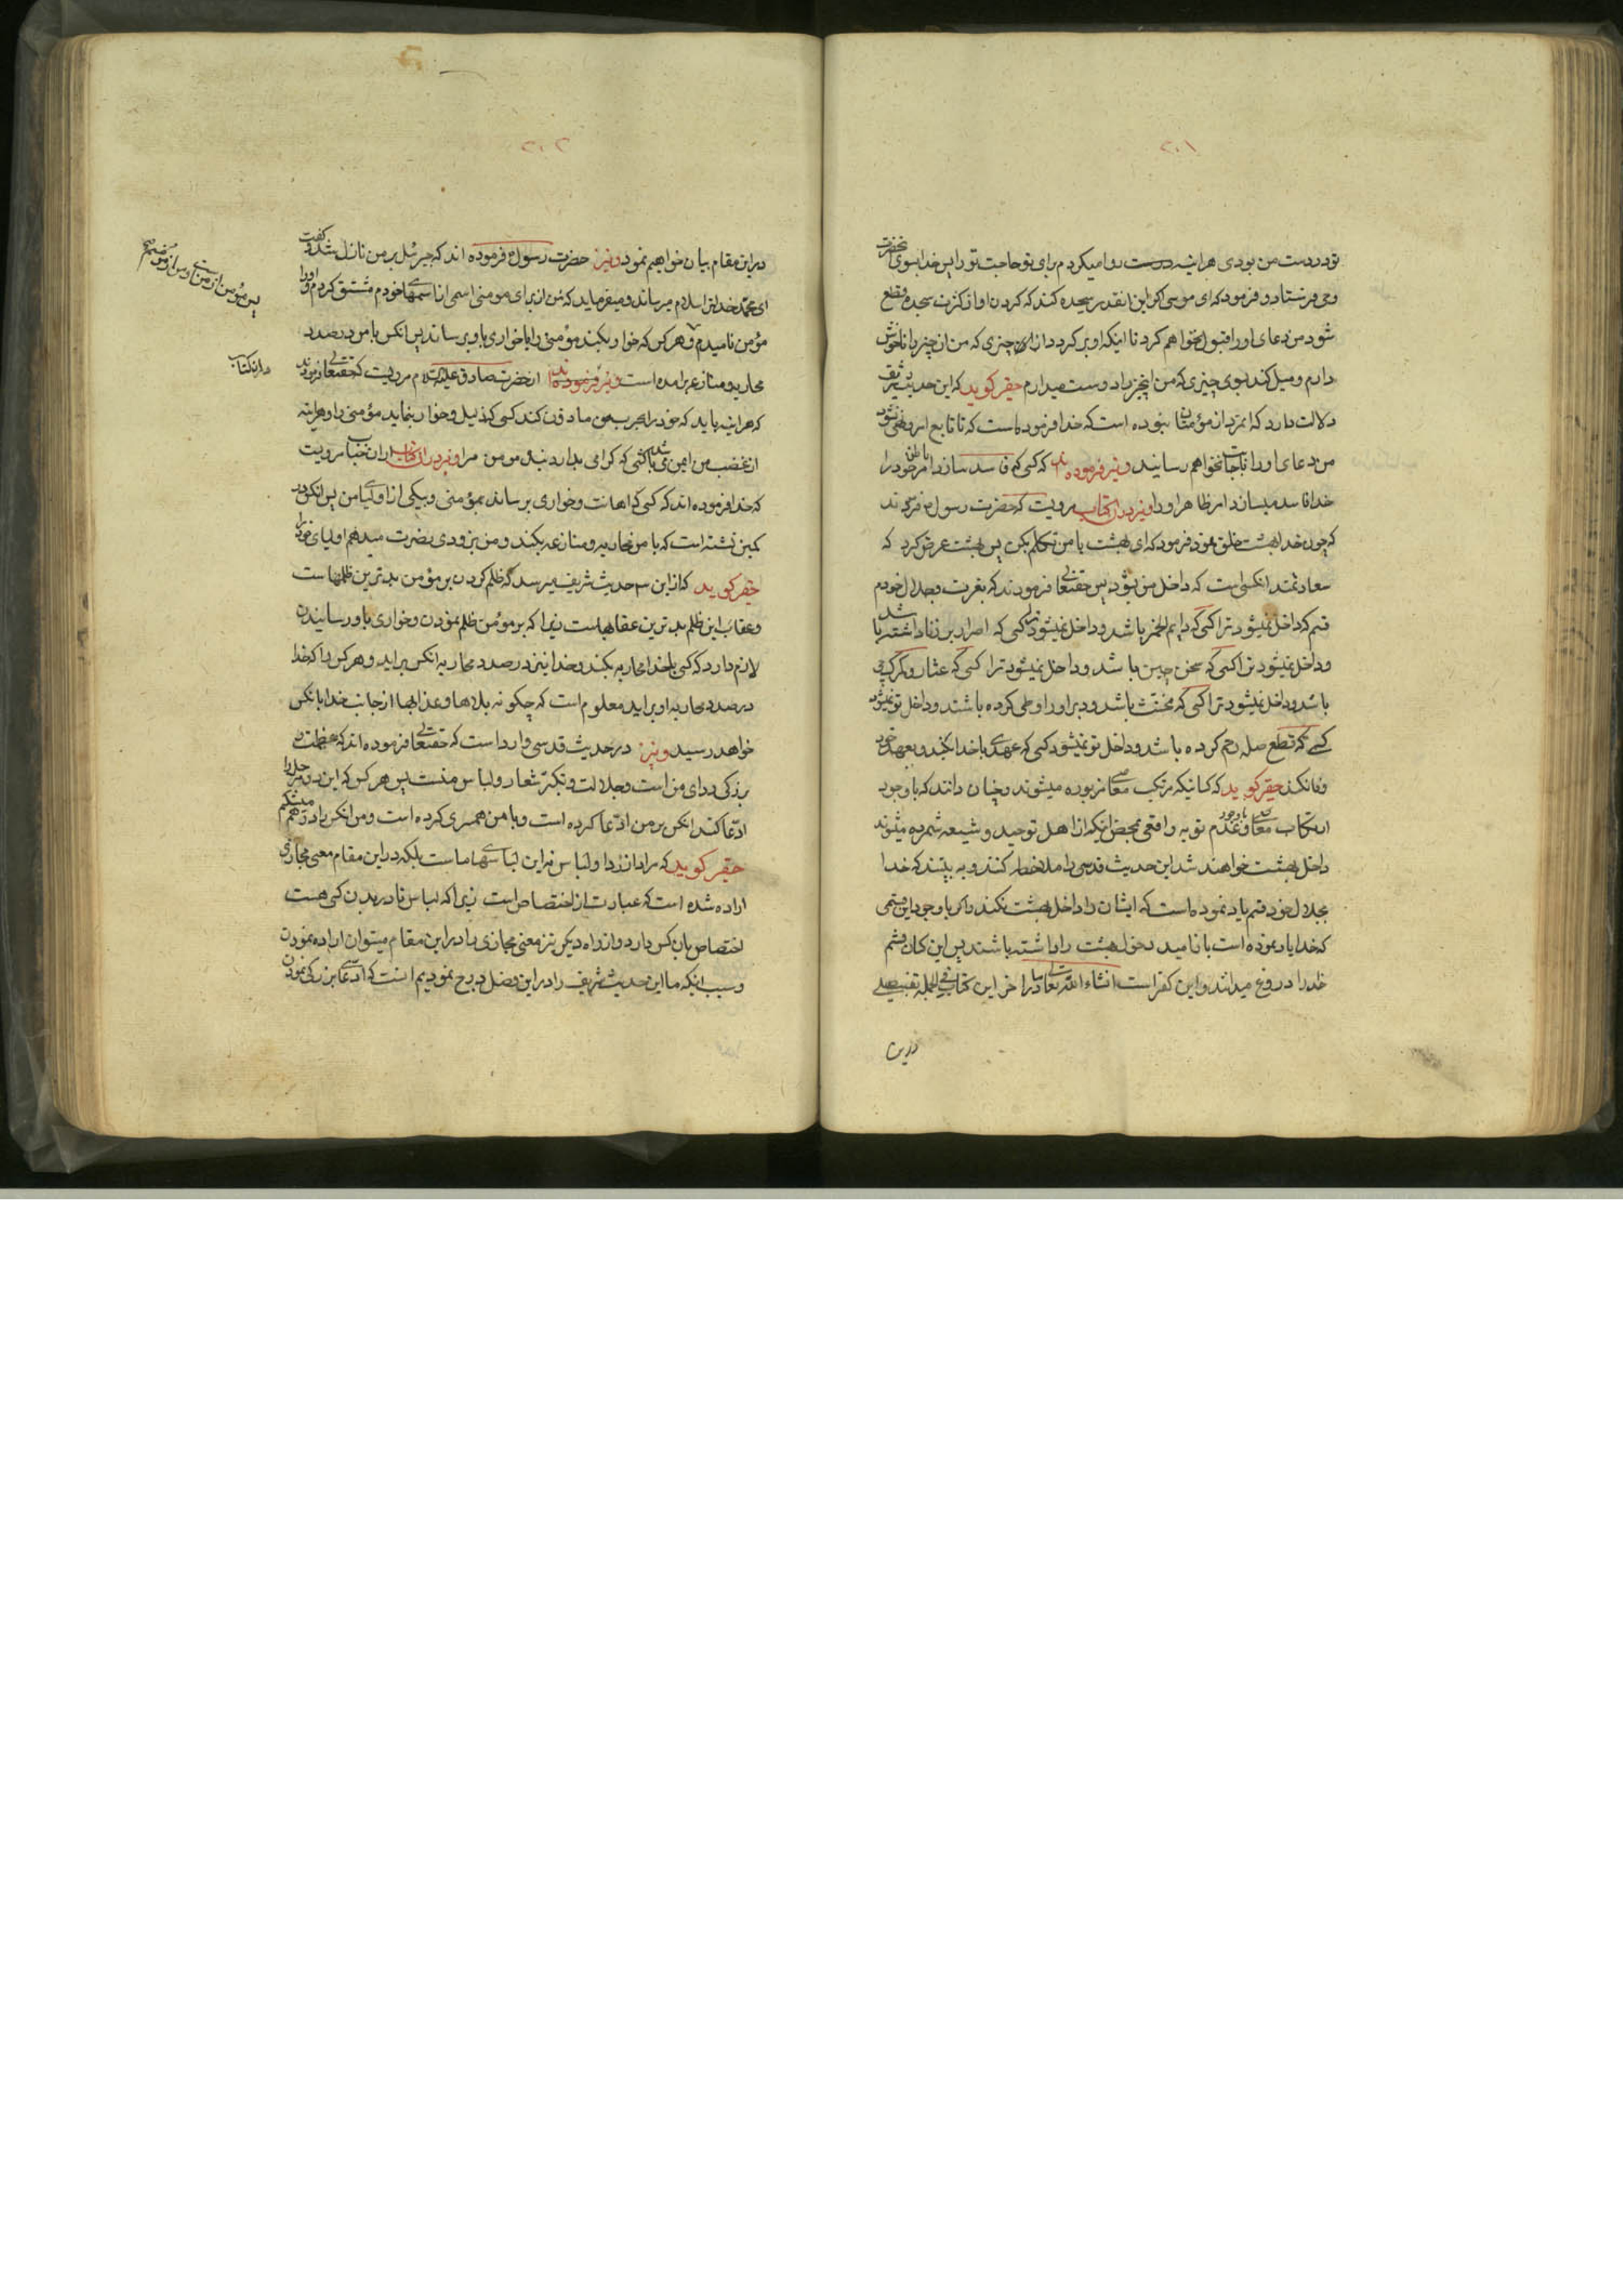 ۲۰۱
تو در دست من بودی هراینه درست روا میکردم برای تو حاجت تو را پس خدا بسوی انحضرت
وحی فرستاد و فرمود که ای موسی اگر این انقدر سجده کند که گردن او از کثرت سجده قطع
شود من دعای او را قبول نخواهم کرد تا اینکه او برگردد از ان چیزی که من ان چیز را ناخوش
دارم و میل کند بسوی چیزی که من انچیز را دوست میدارم حقیر کوید که این حدیث شریف
دلالت دارد که انمرد از مؤمنان نبوده است که خدا فرموده است که تا تابع امر و نهی نشود
من دعای او را باجابت نخواهم رسانید و نیز فرموده اند که کسی که فاسد سازد امر باطن خود را
خدا فاسد میسازد امر ظاهر او را و نیز در ان کتاب مرویست که حضرت رسول فرمودند
که چون خدا بهشت خلق نمود فرمود که ای بهشت با من تکلم بکن پس بهشت عرض کرد که
سعادتمند انکسی است که داخل من بشود پس حقتعالی فرمودند که بعزت و بجلال خودم
قسم که داخل نمیشود ترا کسی که دایم الخمر باشد و داخل نمیشود ترا کسی که اصرار بر زنا داشته باشد
و داخل نمیشود ترا کسی که سخن چین باشد و داخل نمیشود ترا کسی که عشار و کمرکچی
باشد و داخل نمیشود ترا کسی که مخنث باشد و دبر او را وطی کرده باشند و داخل تو نمیشود
کسی که قطع صله رحم کرده باشد و داخل تو نمیشود کسی که عهدی با خدا بکند و بعهد خود
وفا نکند حقیر کوید که کسانیکه مرتکب معاصی مزبوره میشوند و چنان دانند که با وجود
ارتکاب معاصی و با وجود عدم توبه واقعی بمحض اینکه از اهل توحید و شیعه شمرده میشوند
داخل بهشت خواهند شد این حدیث قدسی را ملاحظه کنند و به بینند که خدا
بجلال خود قسم یاد نموده است که ایشان را داخل بهشت نکند و اکر با وجود این قسمی
که خدا یاد نموده است باز امید دخول بهشت را داشته باشند پس این کسان قسم
خدا را دروغ میدانند و این کفر است انشاء الله تعالی ما در اخر این کتاب فی الجمله تفصیلی
در این
۲۰۲
در این مقام بیان خواهیم نمود و نیز حضرت رسول فرموده اند که جبرئیل بر من نازل شد و گفت
ای محمد خدا بتو سلام میرساند و میفرماید که من از برای مومنی اسمی از اسمهای خودم مشتق کردم و او را
مؤمن نامیدم و هر کس که خوار بکند مؤمنی را یا خواری باو برساند پس انکس با من در صدد
محاربه و منازعه برامده است و نیز فرموده اند از حضرت صادق علیه السلام مرویست که حقتعالی فرمودند
که هراینه باید که خود را بحرب من مأذون کند کسی که ذلیل و خوار بنماید مؤمنی را و هراینه
از غضب من ایمن میباشد کسی که کرامی بدارد بنده مومن مرا و نیز در ان کتاب از ان جناب مرویست
که خدا فرموده اند که کسی که اهانت و خواری برساند بمؤمنی و بیکی از اولیای من پس انکس در
کمین نشسته است که با من محاربه و منازعه بکند و من بزودی نصرت میدهم اولیای خود را
حقیر کوید که از این ۳ حدیث شریف میرسد که ظلم کردن بر مؤمن بدترین ظلمهاست
و عقاب این ظلم بدترین عقابهاست زیرا که بر مومن ظلم نمودن و خواری باو رسانیدن
لازم دارد که کسی با خدا محاربه بکند و خدا نیز در صدد محاربه انکس براید و هر کس را که خدا
در صدد محاربه او براید معلوم است که چکونه بلاها و عذابها از جانب خدا بانکس
خواهد رسید و نیز در حدیث قدسی وارد است که حقتعالی فرموده اند که عظمت و
بزرکی ردای من است و جلالت و تکبر شعار و لباس منست پس هر کس که این دو را
ادعا کند انکس بر من ادعا کرده است و با من همسری کرده است و من انکس را در هم میشکنم
حقیر کوید که مراد از ردا و لباس نه این لباسهای ماست بلکه در این مقام معنی مجازی
اراده شده است که عبارت از اختصاص است زیرا که لباس تا در بدن کسی هست
اختصاص بان کس دارد و از راه دیکر نیز معنی مجازی را در این مقام میتوان اراده نمودن
و سبب اینکه ما این حدیث شریف را در این فصل درج نمودیم انست که ادعای بزرکی نمودن
پس مؤمن از من است و من از مؤمنم
در ان کتاب